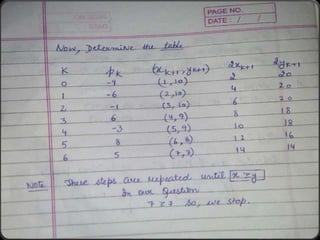 PAGE NO.
DATE: / /
Now, Determine the table
K Pk (xk+1, yk+1) 2xk+1 2yk+1
0 -7 (1, 10) 2 20
1 -6 (2, 10) 4 20
2 -1 (3, 10) 6 20
3 6 (4, 9) 8 18
4 -3 (5, 9) 10 18
5 8 (6, 8) 12 16
6 5 (7, 7) 14 14
Note These steps are repeated until x ≥ y
In our Question
7 ≥ 7 So, we stop.